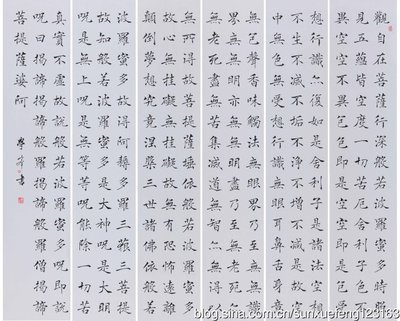 觀自在菩薩行深般若波羅蜜多時照
見五蘊皆空度一切苦厄舍利子色不
異空空不異色色即是空空即是色受
想行識亦復如是舍利子是諸法空相
不生不滅不垢不淨不增不減是故空
中無色無受想行識無眼耳鼻舌身意
無色聲香味觸法無眼界乃至無意識
界無無明亦無無明盡乃至無老死亦
無老死盡無苦集滅道無智亦無得以
無所得故菩提薩埵依般若波羅蜜多
故心無挂礙無挂礙故無有恐怖遠離
顛倒夢想究竟涅槃三世諸佛依般若
波羅蜜多故得阿耨多羅三藐三菩提
故知般若波羅蜜多是大神呪是大明
呪是無上呪是無等等呪能除一切苦
真實不虛故說般若波羅蜜多呪即說
呪曰揭諦揭諦般羅揭諦般羅僧揭諦
菩提薩婆訶
書
blog.sina.com.cn/sunxuefeng123163